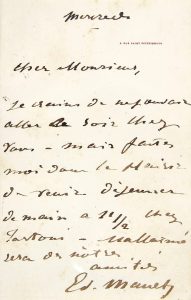 Mercredi
4, RUE SAINT-PÉTERSBOURG
Cher Monsieur,
Je crains de ne pouvoir
aller ce soir chez
vous - mais faites
moi donc le plaisir
de venir déjeuner
demain à 11 1/2 chez
Tortoni - Mallarmé
sera des nôtres
amitiés
Ed. Manet